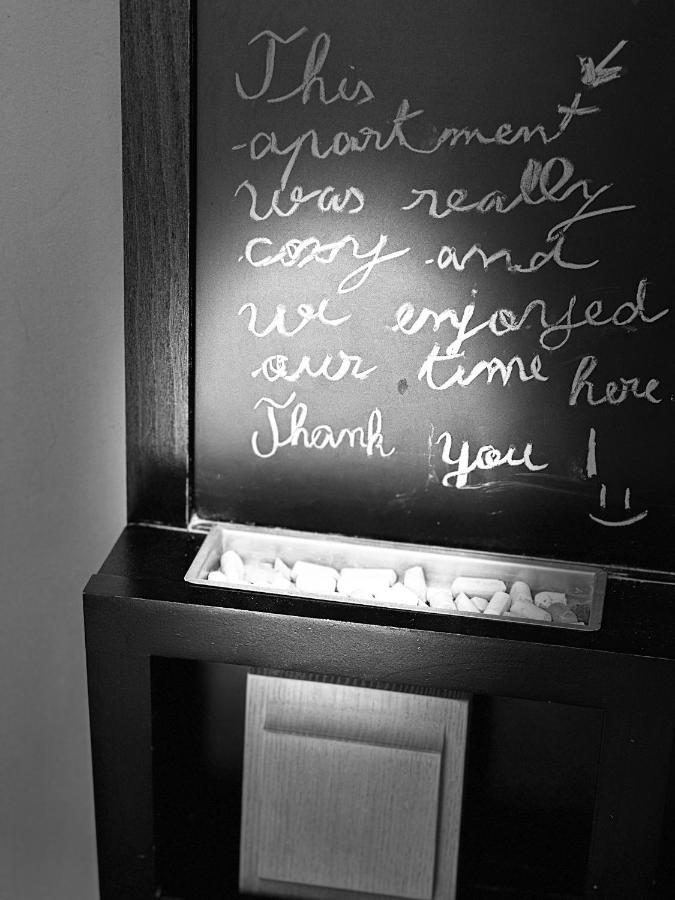 This
apartment
was really
cosy and
we enjoyed
our time here.
Thank you !